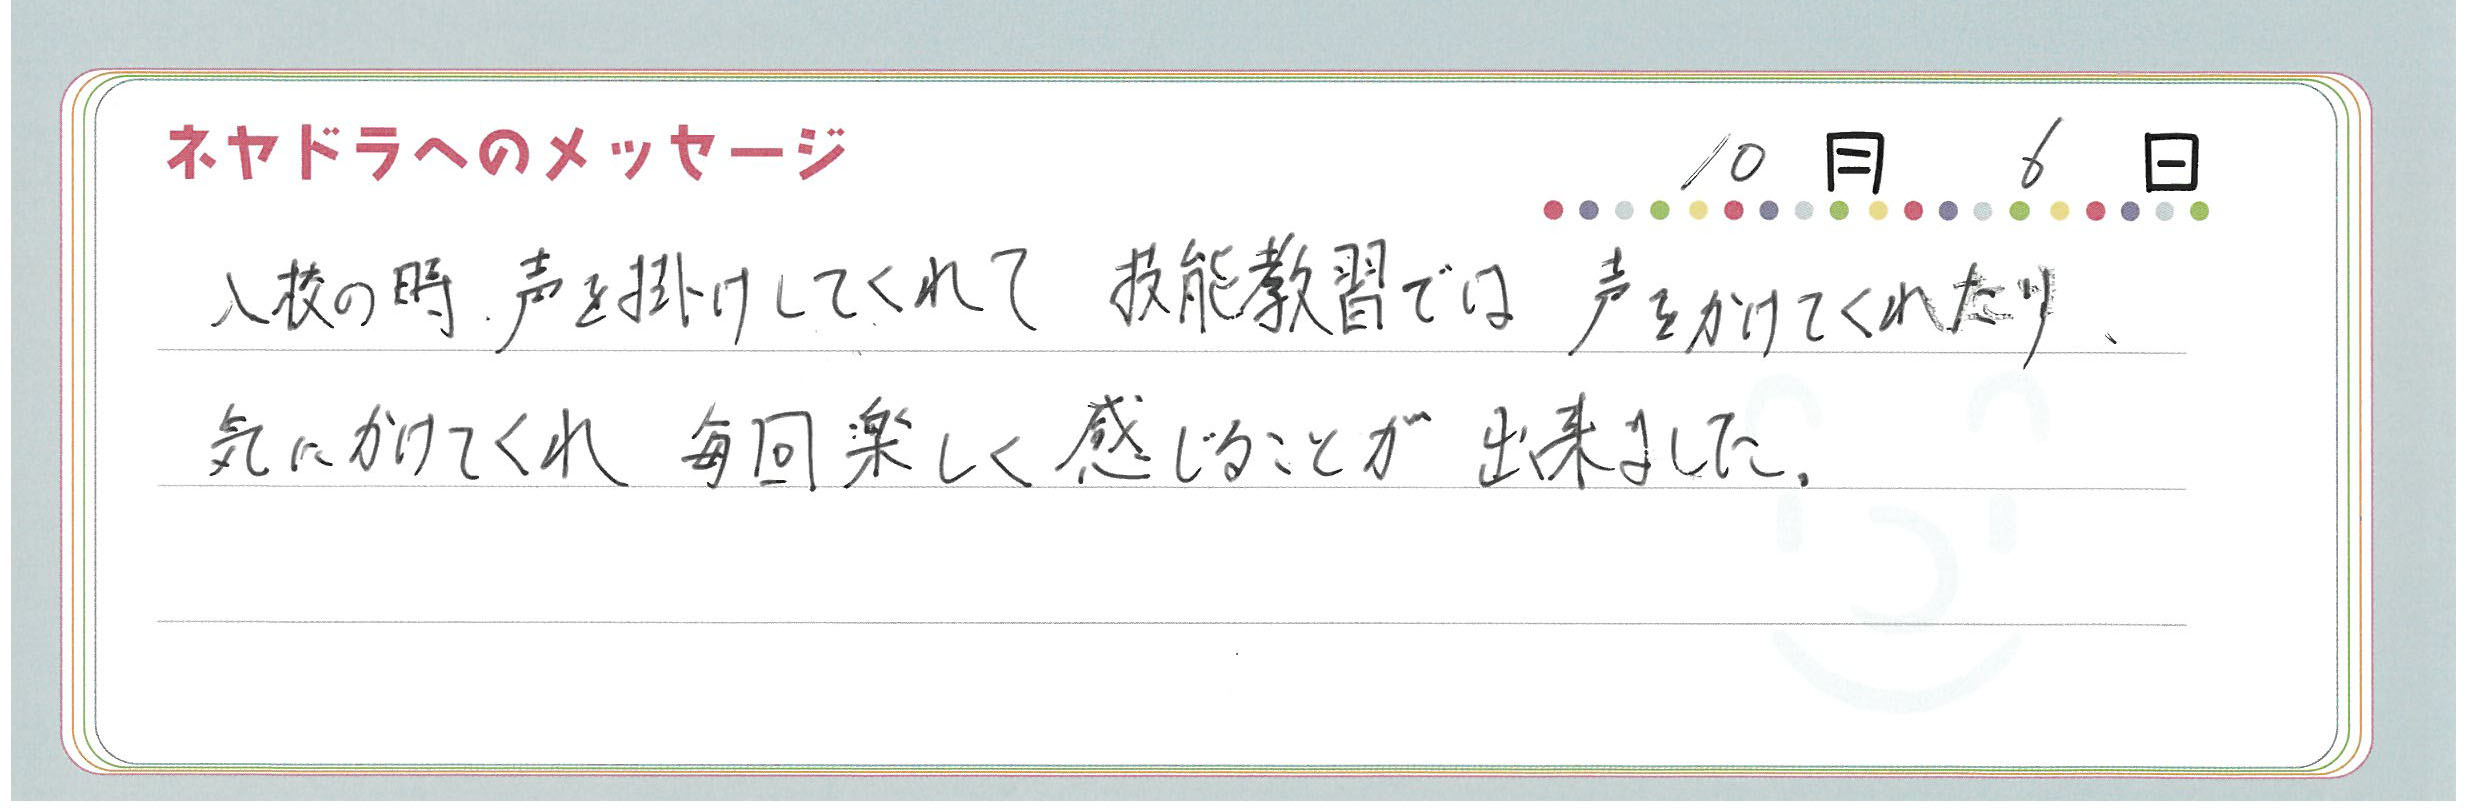 ネヤドラへのメッセージ
10月 6日
入校の時、声を掛けしてくれて 技能教習では 声をかけてくれたり、
気にかけてくれ 毎回楽しく感じることが 出来ました。